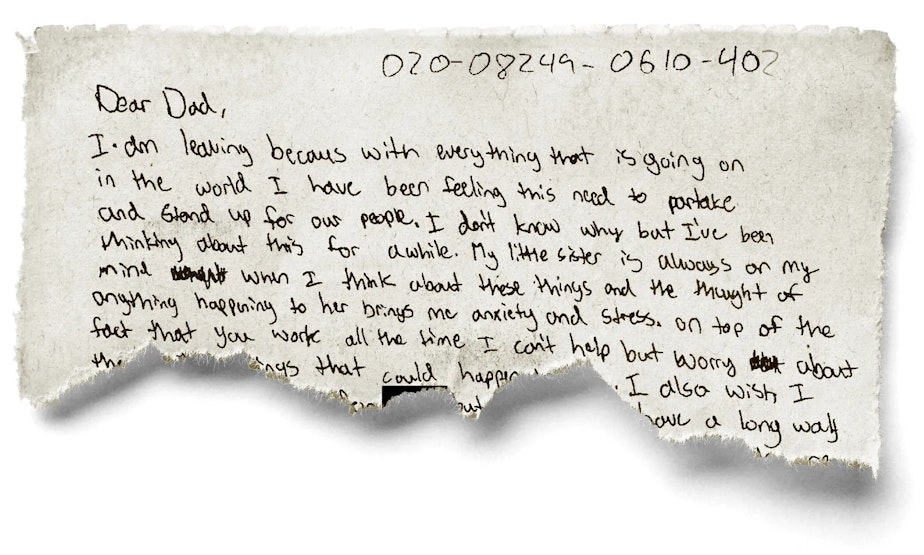 020-08249-0610-402
Dear Dad,
I am leaving becaus with everything that is going on
in the world I have been feeling this need to partake
and stand up for our people. I don't know why but I've been
thinking about this for awhile. My little sister is always on my
mind when I think about these things and the thought of
anything happening to her brings me anxiety and stress. on top of the
fact that you work all the time I can't help but worry about
that could I also wish I
have a long way